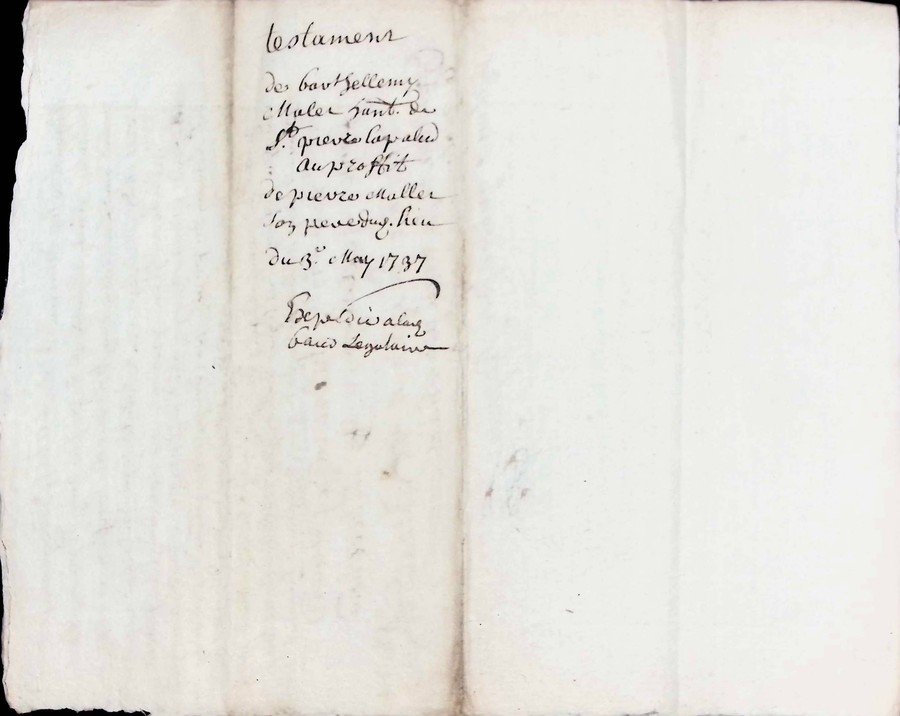 testament
de barthellemy
Malet hant. de
St. pierre lapalud
au proffit
de pierre Mallet
son pere dud. lieu
du 3e. May 1737
Expedié a lad.